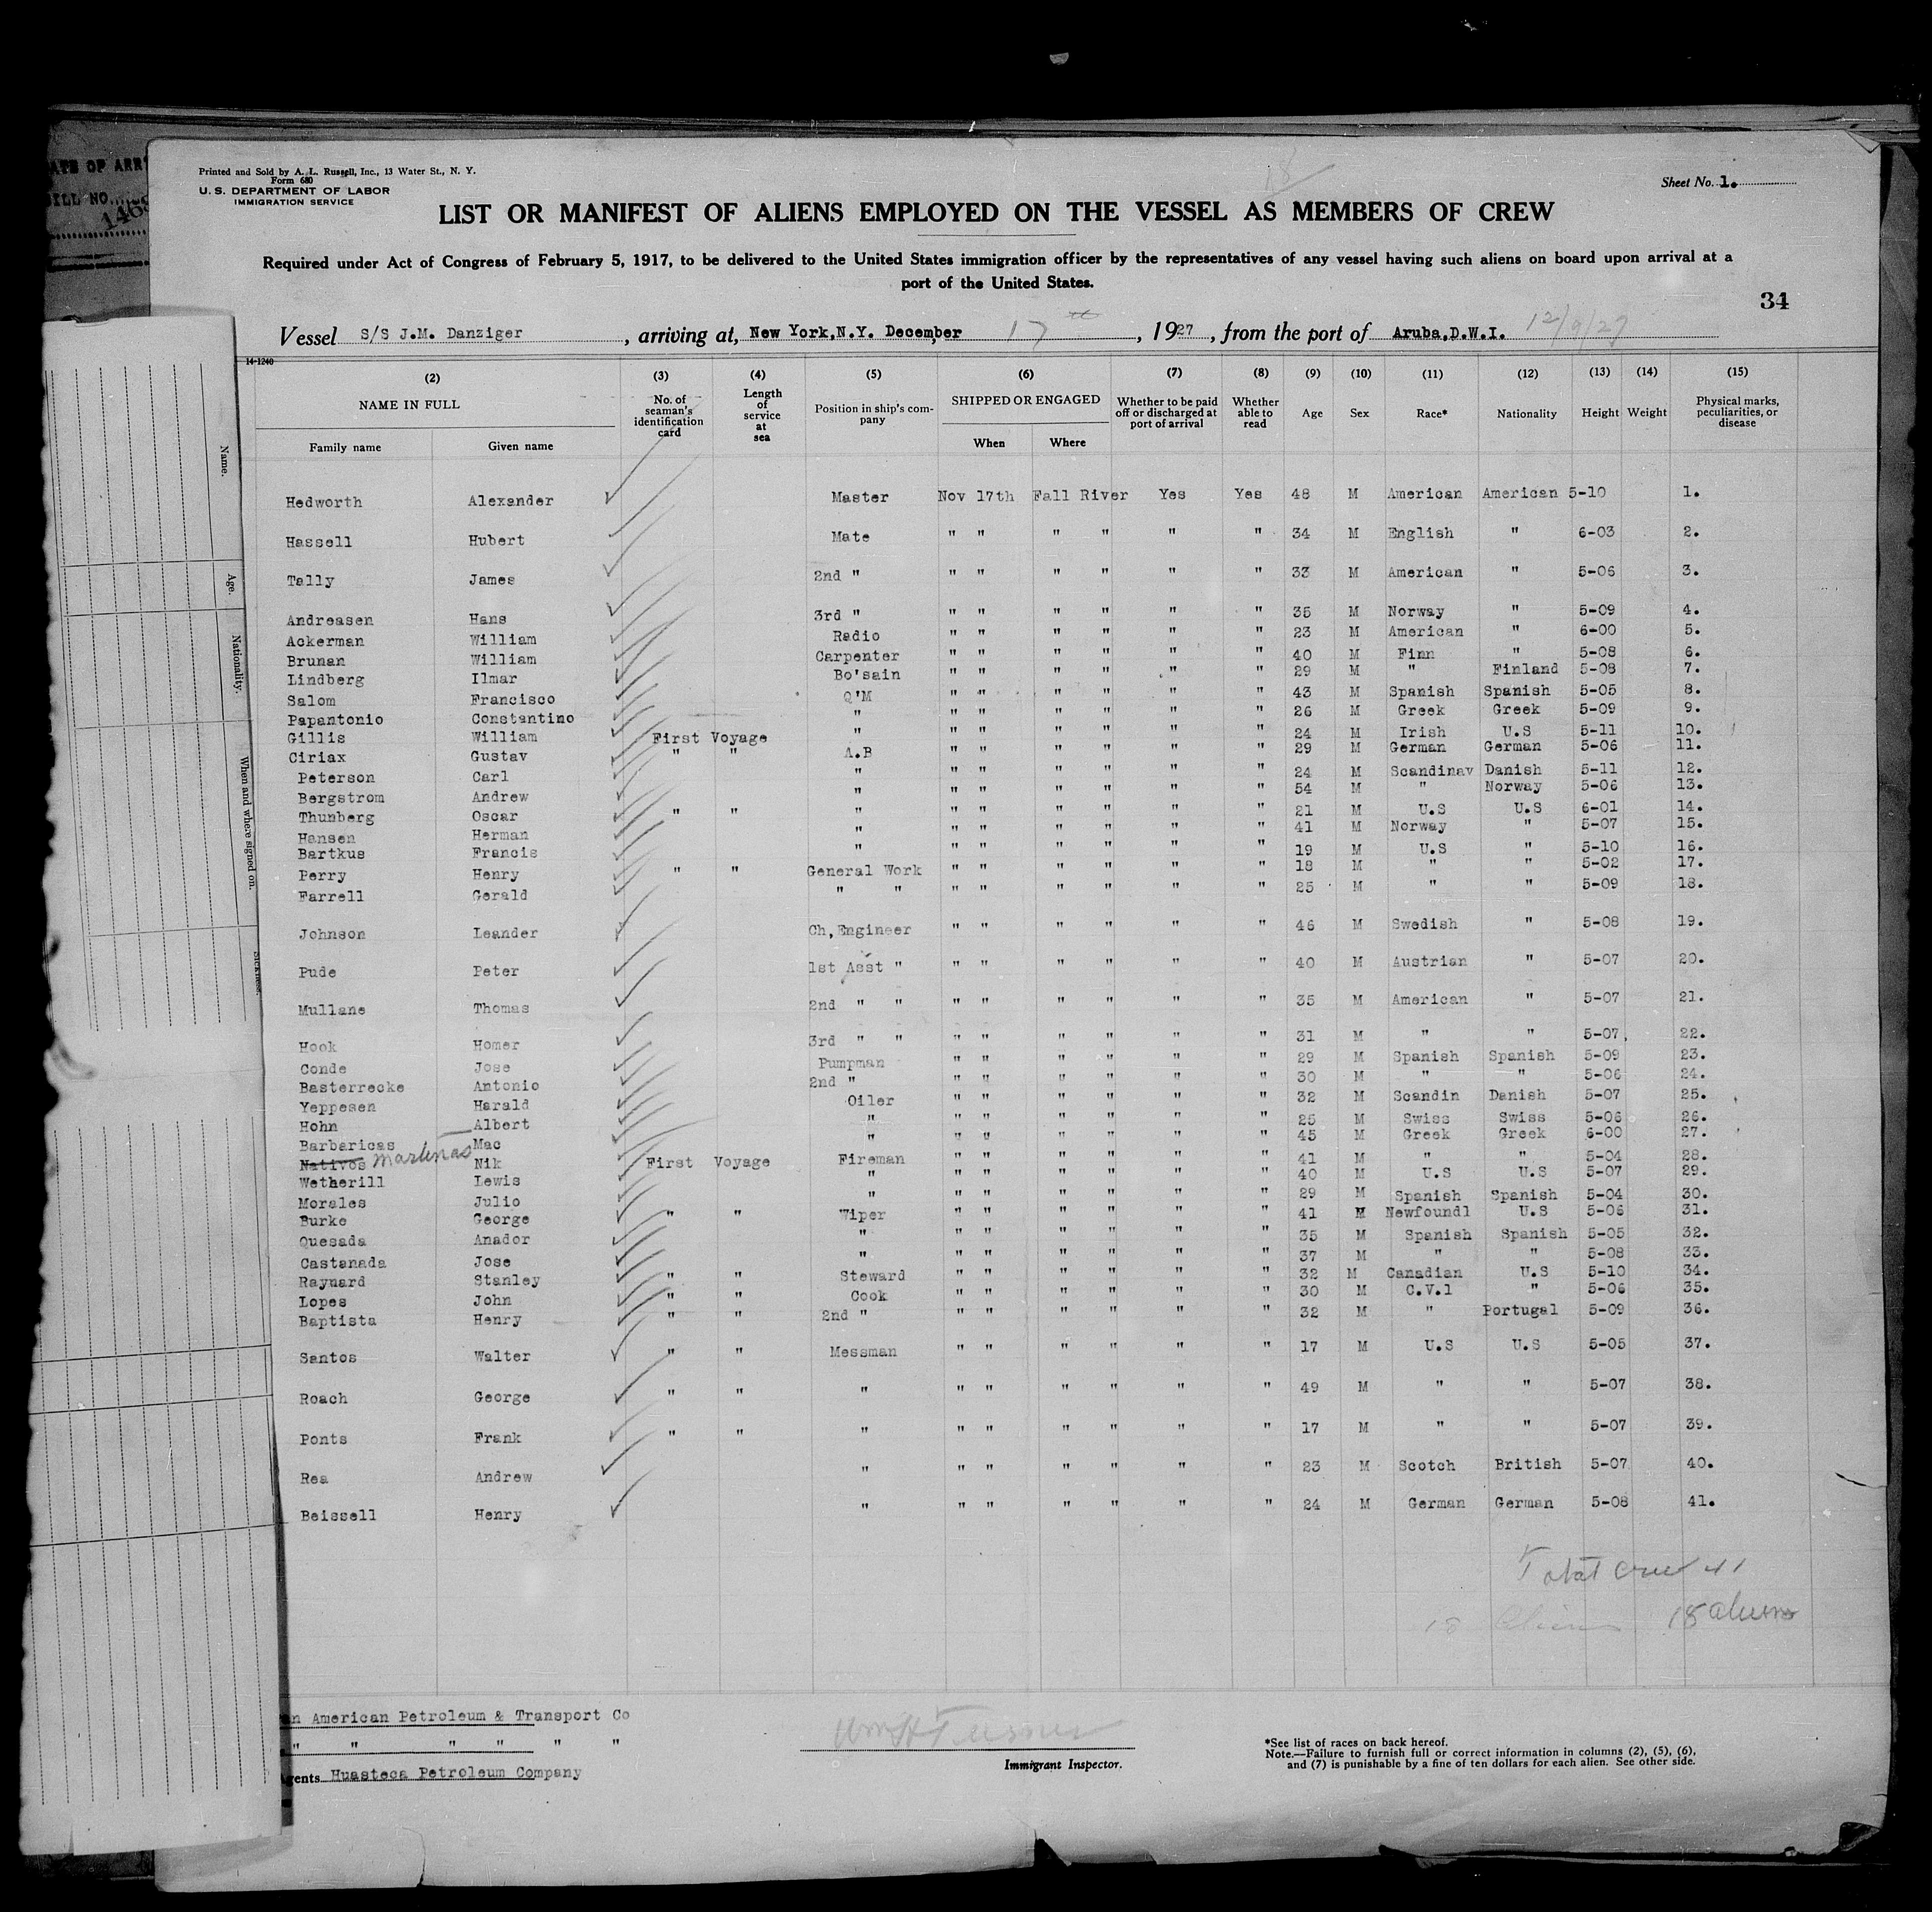 ATE OF ARR
BILL NO.
1468
Printed and Sold by A. L. Russell, Inc., 13 Water St., N. Y.
Form 680
U. S. DEPARTMENT OF LABOR
IMMIGRATION SERVICE
18
Sheet No. 1.
LIST OR MANIFEST OF ALIENS EMPLOYED ON THE VESSEL AS MEMBERS OF CREW
Required under Act of Congress of February 5, 1917, to be delivered to the United States immigration officer by the representatives of any vessel having such aliens on board upon arrival at a
port of the United States.
34
Vessel S/S J.M. Danziger, arriving at, New York,N.Y. December 17th, 1927, from the port of Aruba,D.W.I. 12/9/27
14-1240
(2) (3) (4) (5) (6) (7) (8) (9) (10) (11) (12) (13) (14) (15)
NAME IN FULL No. of seaman's identification card Length of service at sea Position in ship's company SHIPPED OR ENGAGED Whether to be paid off or discharged at port of arrival Whether able to read Age Sex Race* Nationality Height Weight Physical marks, peculiarities, or disease
Family name Given name When Where
Hedworth Alexander Master Nov 17th Fall River Yes Yes 48 M American American 5-10 1.
Hassell Hubert Mate " " " " " " 34 M English " 6-03 2.
Tally James 2nd " " " " " " " 33 M American " 5-06 3.
Andreasen Hans 3rd " " " " " " " 35 M Norway " 5-09 4.
Ackerman William Radio " " " " " " 23 M American " 6-00 5.
Brunan William Carpenter " " " " " " 40 M Finn " 5-08 6.
Lindberg Ilmar Bo'sain " " " " " " 29 M " Finland 5-08 7.
Salom Francisco Q'M " " " " " " 43 M Spanish Spanish 5-05 8.
Papantonio Constantino " " " " " " " 26 M Greek Greek 5-09 9.
Gillis William First Voyage " " " " " " " 24 M Irish U.S 5-11 10.
Ciriax Gustav " " A.B " " " " " " 29 M German German 5-06 11.
Peterson Carl " " " " " " " 24 M Scandinav Danish 5-11 12.
Bergstrom Andrew " " " " " " " 54 M " Norway 5-06 13.
Thunberg Oscar " " " " " " " " " 21 M U.S U.S 6-01 14.
Hansen Herman " " " " " " " 41 M Norway " 5-07 15.
Bartkus Francis " " " " " " " 19 M U.S " 5-10 16.
Perry Henry " " General Work " " " " " " 18 M " " 5-02 17.
Farrell Gerald " " " " " " " " 25 M " " 5-09 18.
Johnson Leander Ch,Engineer " " " " " " 46 M Swedish " 5-08 19.
Pude Peter 1st Asst " " " " " " " 40 M Austrian " 5-07 20.
Mullane Thomas 2nd " " " " " " " " 35 M American " 5-07 21.
Hook Homer 3rd " " " " " " " " 31 M " " 5-07 22.
Conde Jose Pumpman " " " " " " 29 M Spanish Spanish 5-09 23.
Basterrecke Antonio 2nd " " " " " " " 30 M " " 5-06 24.
Yeppesen Harald Oiler " " " " " " 32 M Scandin Danish 5-07 25.
Hohn Albert " " " " " " " 25 M Swiss Swiss 5-06 26.
Barbaricas Mac " " " " " " " 45 M Greek Greek 6-00 27.
Nativos Martinas Nik First Voyage Fireman " " " " " " 41 M " " 5-04 28.
Wetherill Lewis " " " " " " " 40 M U.S U.S 5-07 29.
Morales Julio " " " " " " " 29 M Spanish Spanish 5-04 30.
Burke George " " Wiper " " " " " " 41 M Newfoundl U.S 5-06 31.
Quesada Anador " " " " " " " 35 M Spanish Spanish 5-05 32.
Castanada Jose " " " " " " " 37 M " " 5-08 33.
Raynard Stanley " " Steward " " " " " " 32 M Canadian U.S 5-10 34.
Lopes John " " Cook " " " " " " 30 M C.V.l " 5-06 35.
Baptista Henry " " 2nd " " " " " " " 32 M " Portugal 5-09 36.
Santos Walter " " Messman " " " " " " 17 M U.S U.S 5-05 37.
Roach George " " " " " " " " " 49 M " " 5-07 38.
Ponts Frank " " " " " " " " " 17 M " " 5-07 39.
Rea Andrew " " " " " " " 23 M Scotch British 5-07 40.
Beissell Henry " " " " " " " 24 M German German 5-08 41.
Total crew 41
18 Aliens 18 aliens
an American Petroleum & Transport Co
" " " " " "
gents Huasteca Petroleum Company
Immigrant Inspector.
*See list of races on back hereof.
Note.—Failure to furnish full or correct information in columns (2), (5), (6),
and (7) is punishable by a fine of ten dollars for each alien. See other side.
Name.
Age.
Nationality.
When and where signed on.